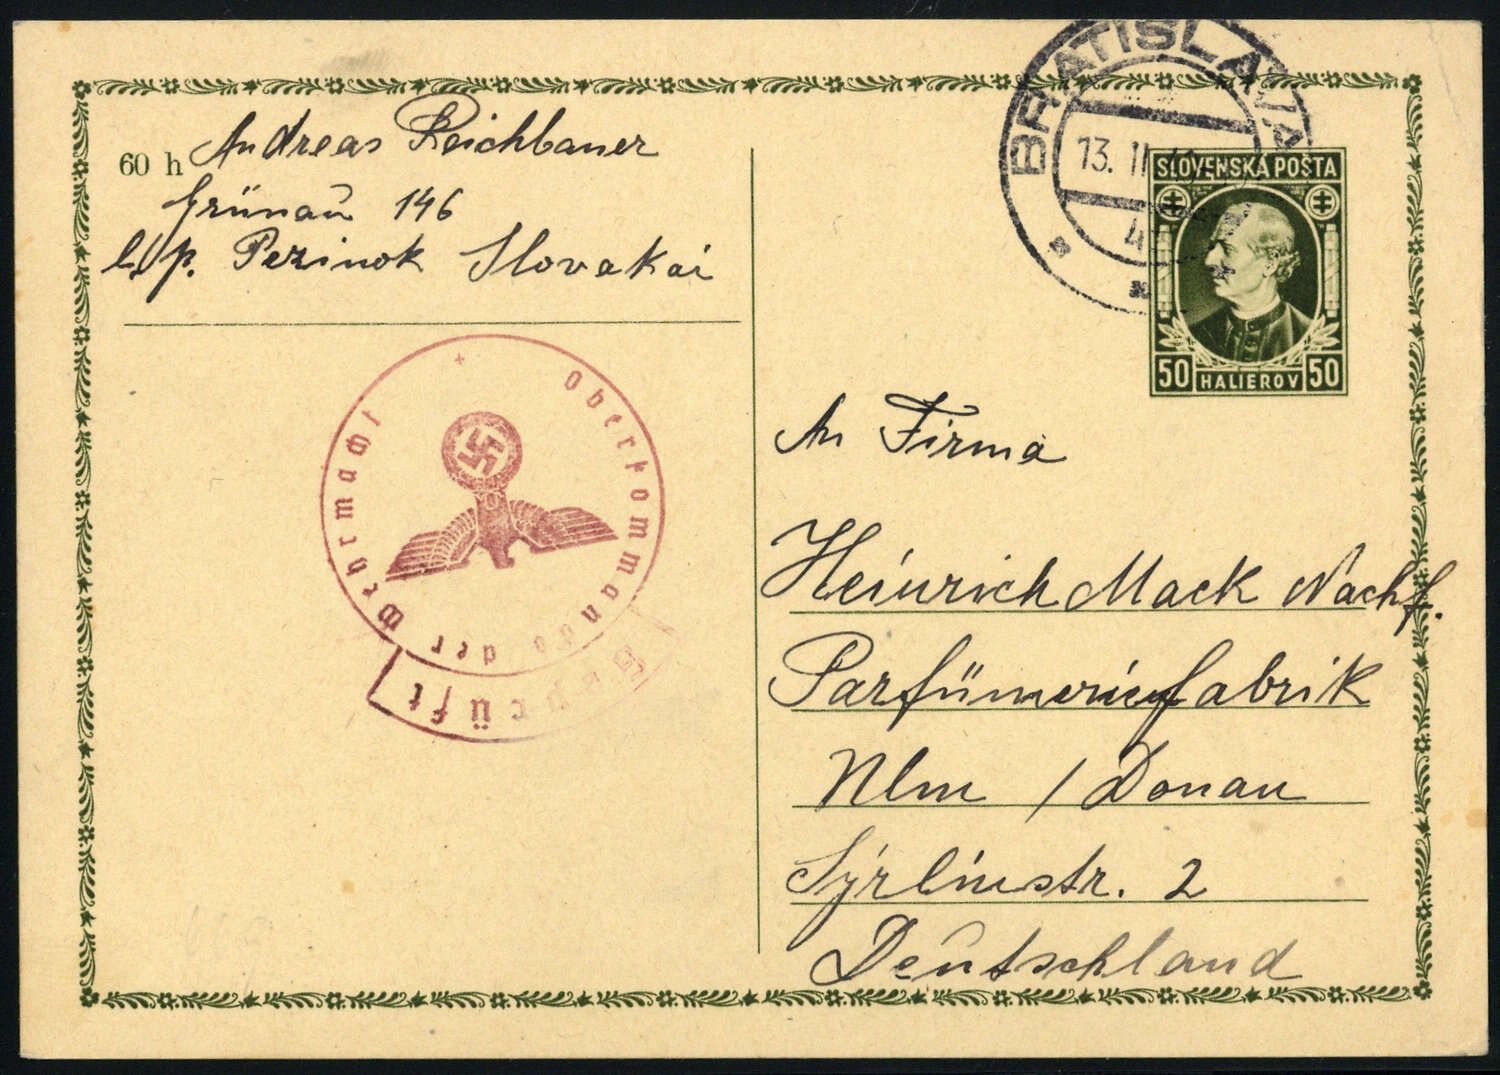 60 h
Andreas Reichbauer
Grünau 146
l. p. Pezinok Slovakai
BRATISLAVA
13. II
4
SLOVENSKÁ POŠTA
50 HALIEROV 50
Oberkommando der Wehrmacht
Geprüft
An Firma
Heinrich Mack Nachf.
Parfümeriefabrik
Ulm / Donau
Syrlinstr. 2
Deutschland